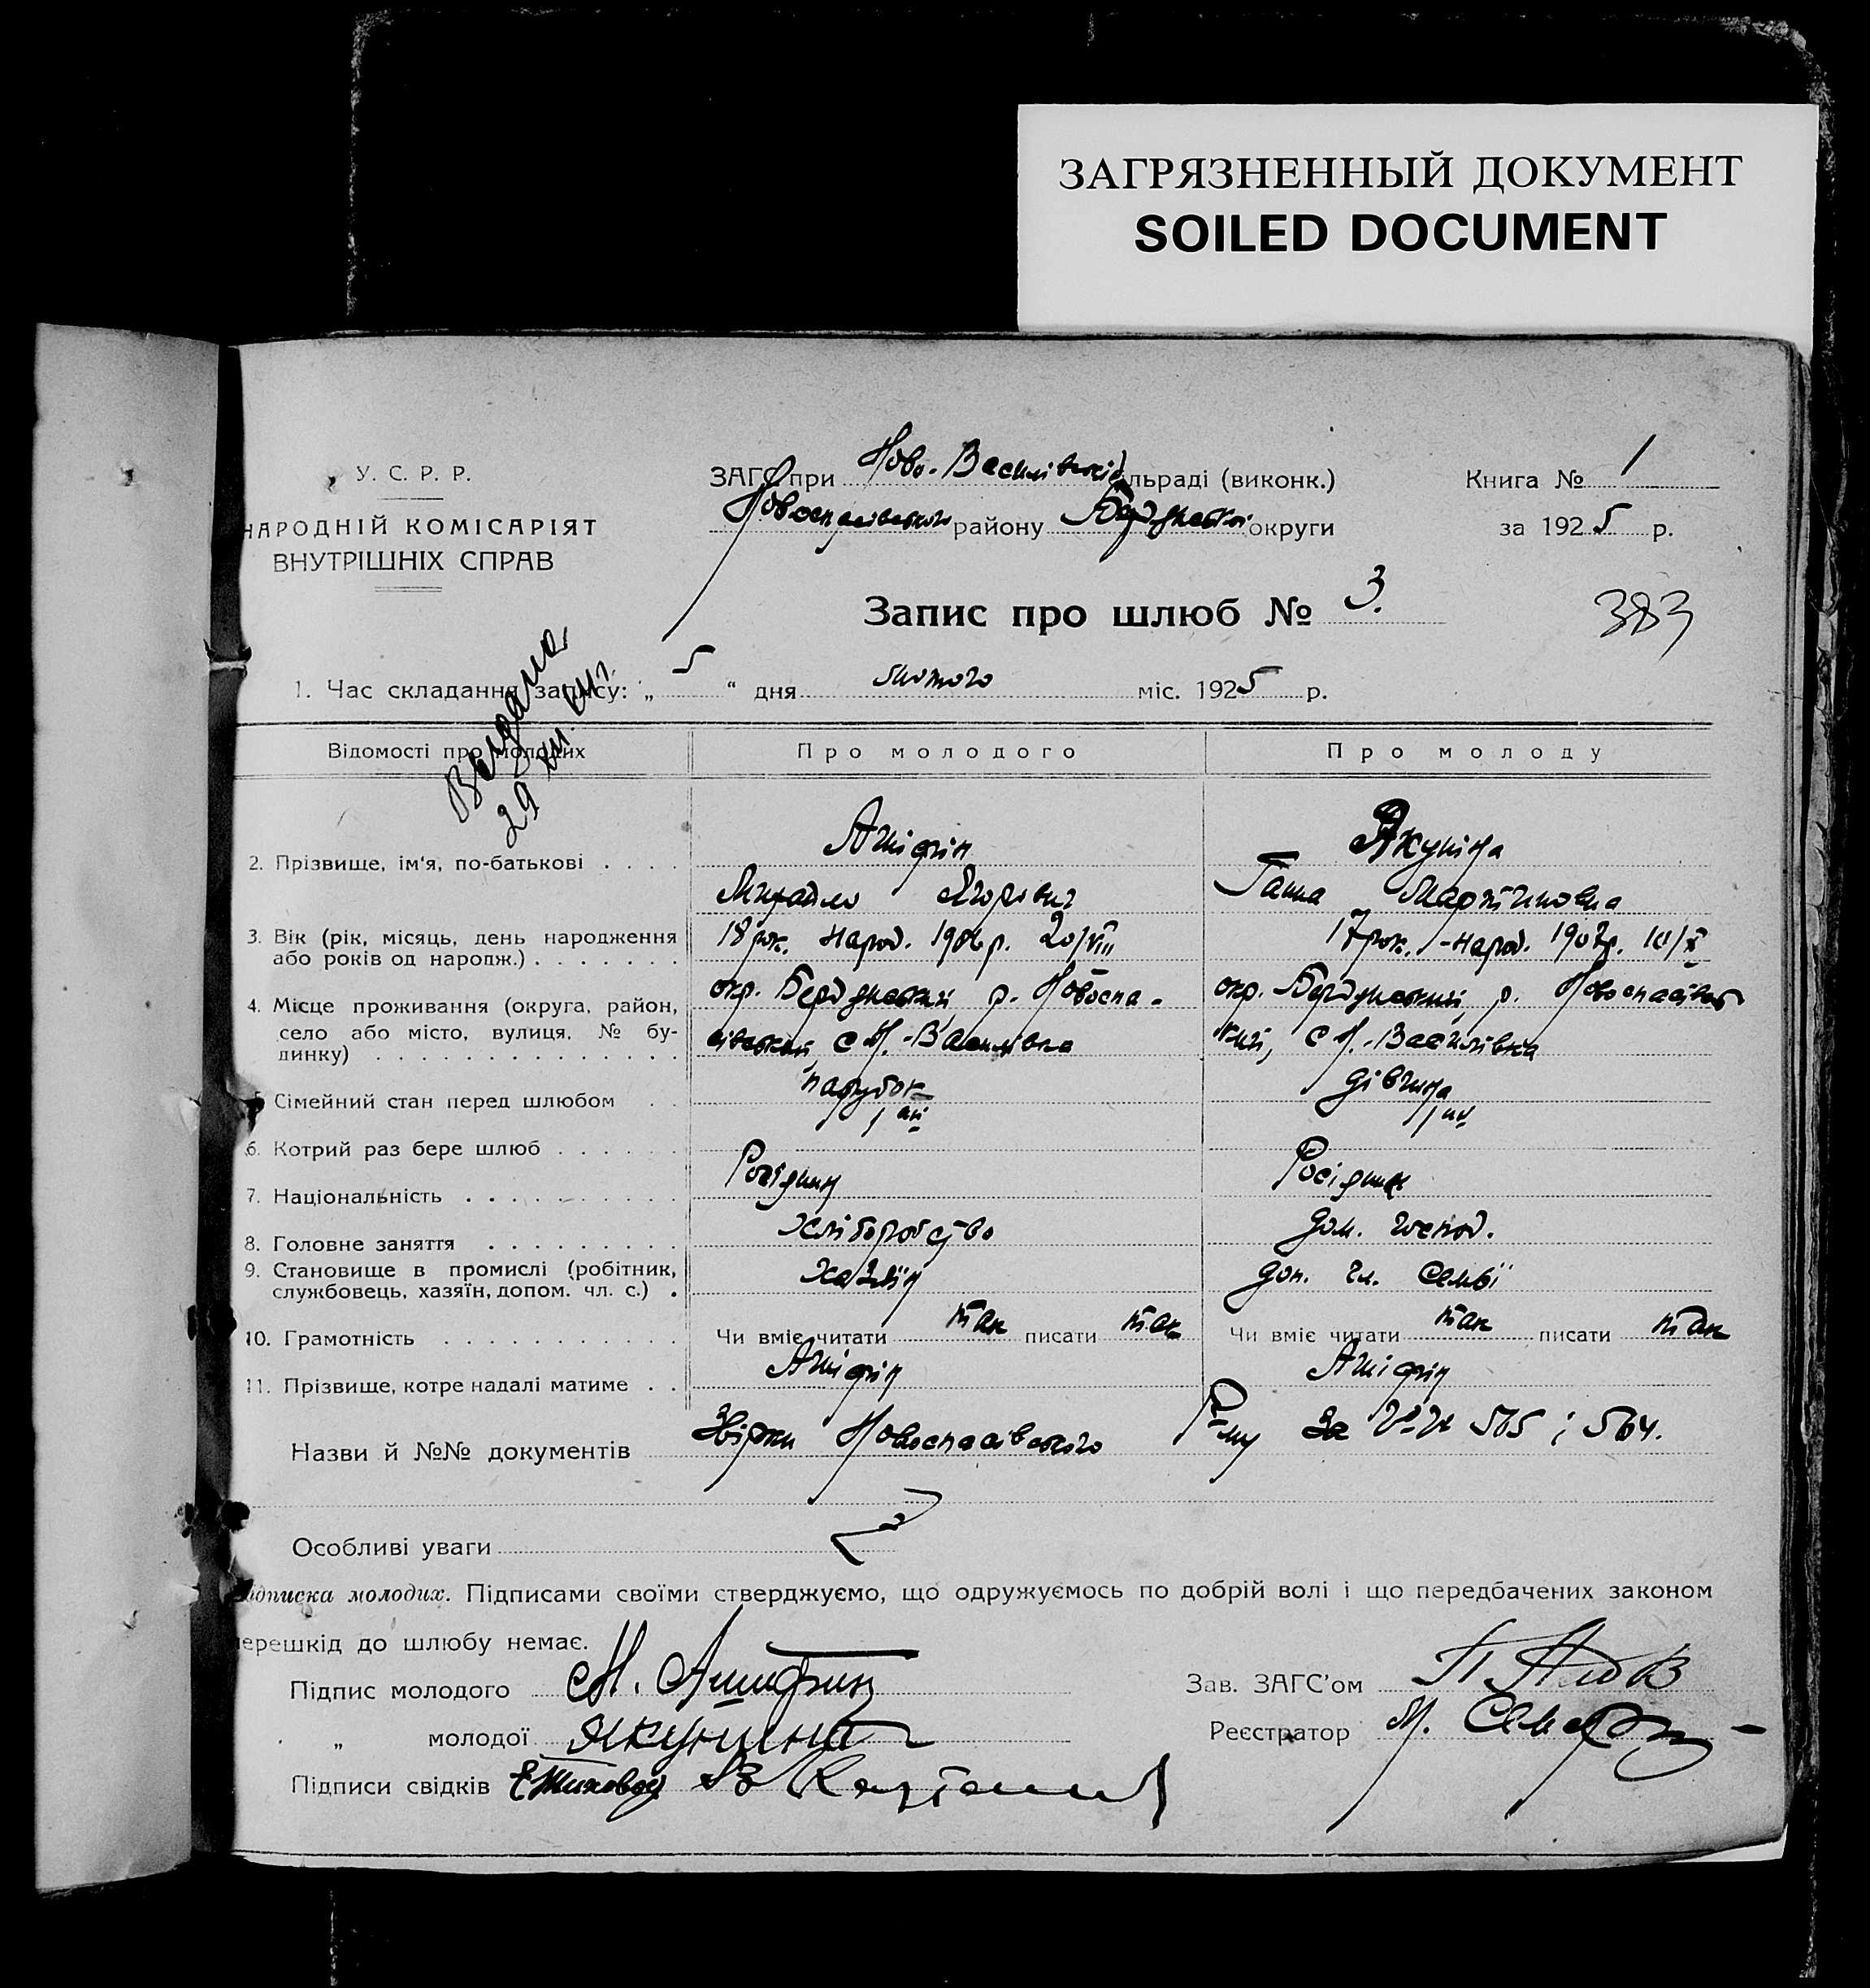 ЗАГРЯЗНЕННЫЙ ДОКУМЕНТ
SOILED DOCUMENT
У. С. Р. Р.
НАРОДНІЙ КОМІСАРІЯТ
ВНУТРІШНІХ СПРАВ
ЗАГС при Ново-Василівській льраді (виконк.)
Новоспасівського району Бердянської округи
Книга № 1
за 1925 р.
Запис про шлюб № 3.
383
1. Час складання запису: „ 5 “ дня лютого міс. 1925 р.
Видана
29
Відомості про молодих
Про молодого
Про молоду
2. Прізвище, ім'я, по-батькові
Ашіфін
Михайло Ягорович
Якуніна
Ганна Мартиновна
3. Вік (рік, місяць, день народження
або років од народж.)
18 рок. народ. 1906 р. 20/VIII
17 рок. народ. 1907 р. 10/X
4. Місце проживання (округа, район,
село або місто, вулиця, № бу-
динку)
окр. Бердянський, р. Новоспа-
сівський, с Н.-Василівка
окр. Бердянський, р. Новоспасівсь
кий, с Н.-Василівка
5. Сімейний стан перед шлюбом
парубок
дівчина
6. Котрий раз бере шлюб
1 ий
1 ий
7. Національність
Росіянин
Росіянка
8. Головне заняття
хліборобство
дом. господ.
9. Становище в промислі (робітник,
службовець, хазяїн, допом. чл. с.)
хазяїн
доп. чл. семьї
10. Грамотність
Чи вміє читати так писати так
Чи вміє читати так писати так
11. Прізвище, котре надалі матиме
Ашіфін
Ашіфін
Назви й №№ документів
Новоспасівського за №№ 565 і 564.
Особливі уваги
Підписка молодих. Підписами своїми стверджуємо, що одружуємось по добрій волі і що передбачених законом
перешкід до шлюбу немає.
Підпис молодого М. Ашифин
„ молодої Якунина
Підписи свідків
Зав. ЗАГС'ом
Реєстратор М.